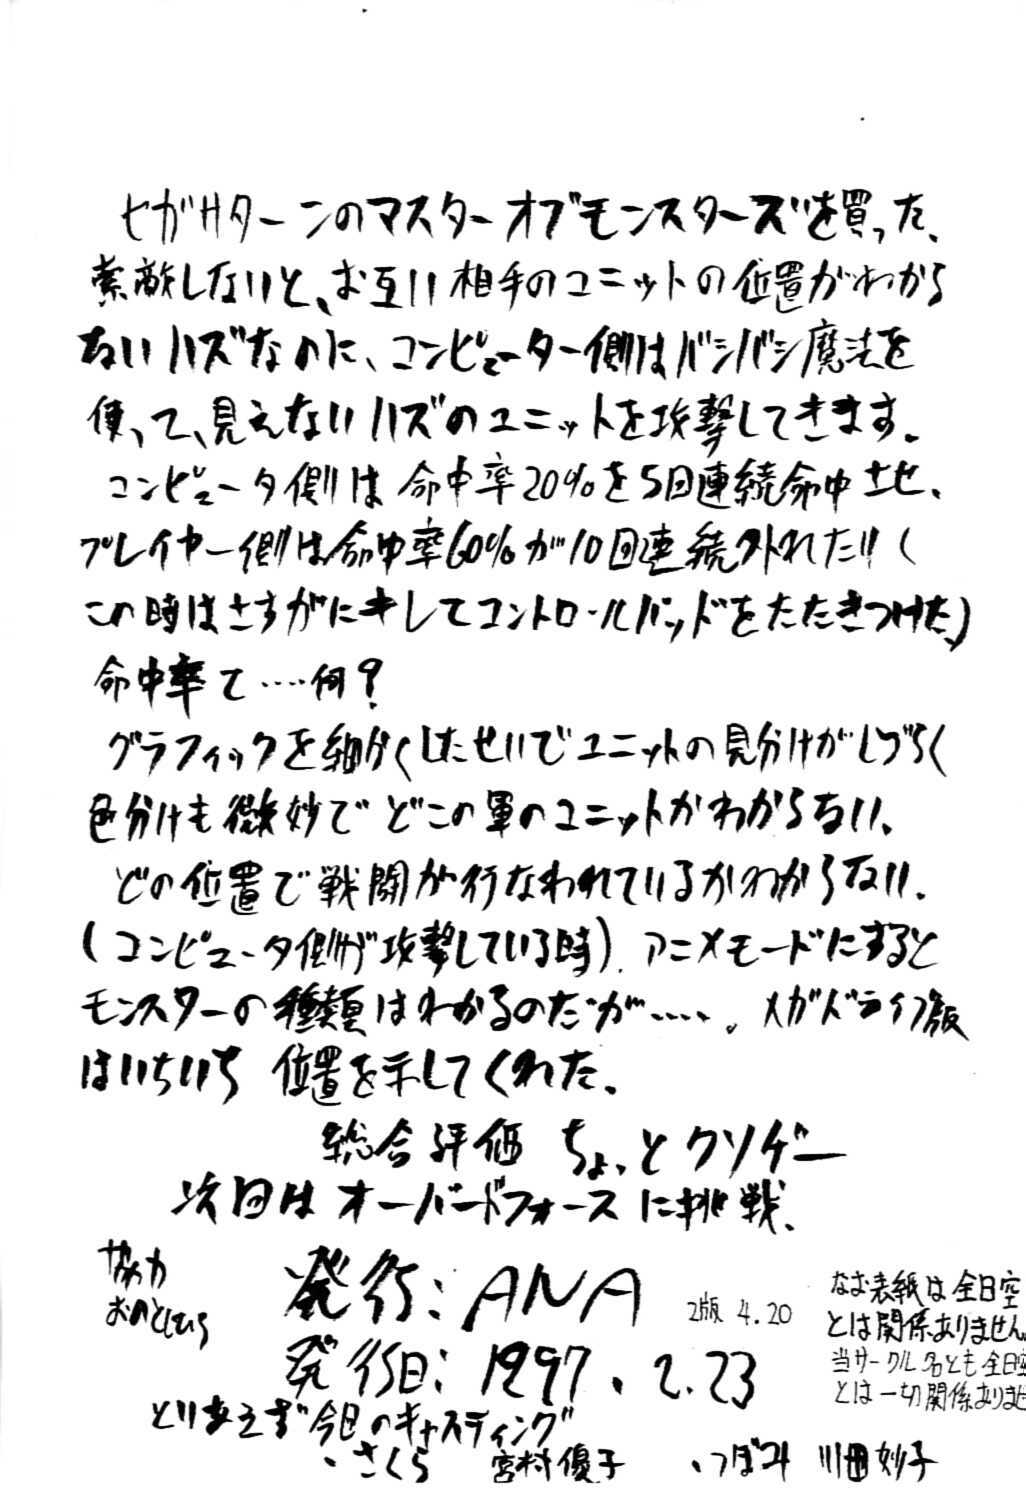 セガサターンのマスターオブモンスターズを買った、
索敵しないと、お互い相手のユニットの位置がわから
ないハズなのに、コンピューター側はバシバシ魔法を
使って、見えないハズのユニットを攻撃してきます。
コンピュータ側は命中率20%を5回連続命中させ、
プレイヤー側は命中率60%が10回連続外れたり(
この時はさすがにキレてコントロールパッドをたたきつけた)
命中率て‥‥何?
グラフィックを細かくしたせいでユニットの見分けがしづらく
色分けも微妙でどこの軍のユニットかわからない、
どの位置で戦闘が行なわれているかわからない、
(コンピュータ側が攻撃している時)、アニメモードにすると
モンスターの種類はわかるのだが‥‥、。メガドライブ版
はいちいち位置を示してくれた、
総合評価 ちょっとクソゲー
次回はオーバードフォースに挑戦、
協力
おのとしひろ
発行:ANA
2版 4.20
発行日:1997.2.23
なお表紙は全日空
とは関係ありません。
当サークル名とも全日空
とは一切関係ありませ
とりあえず今日のキャスティング
・さくら 宮村優子 ・つぼみ 川田妙子